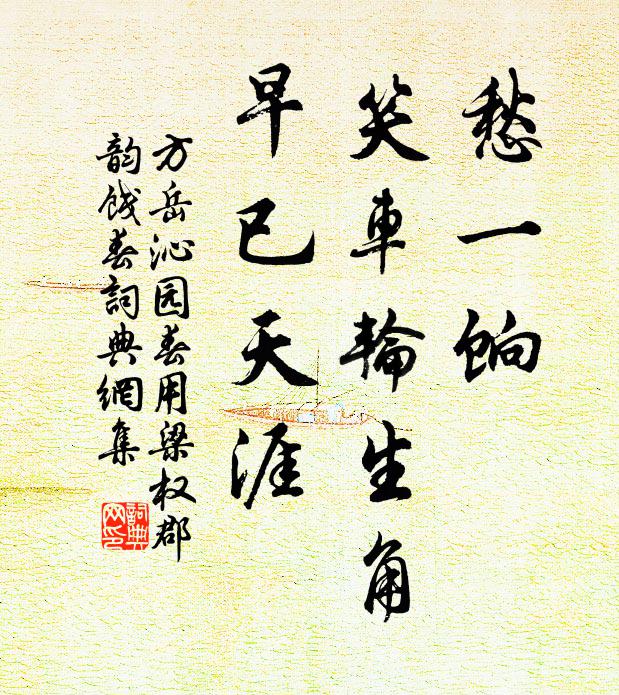 愁一饷
笑車輪生角
早已天涯
方岳沁园春用梁权郡
韵饯春詞典網集
詞典
网印